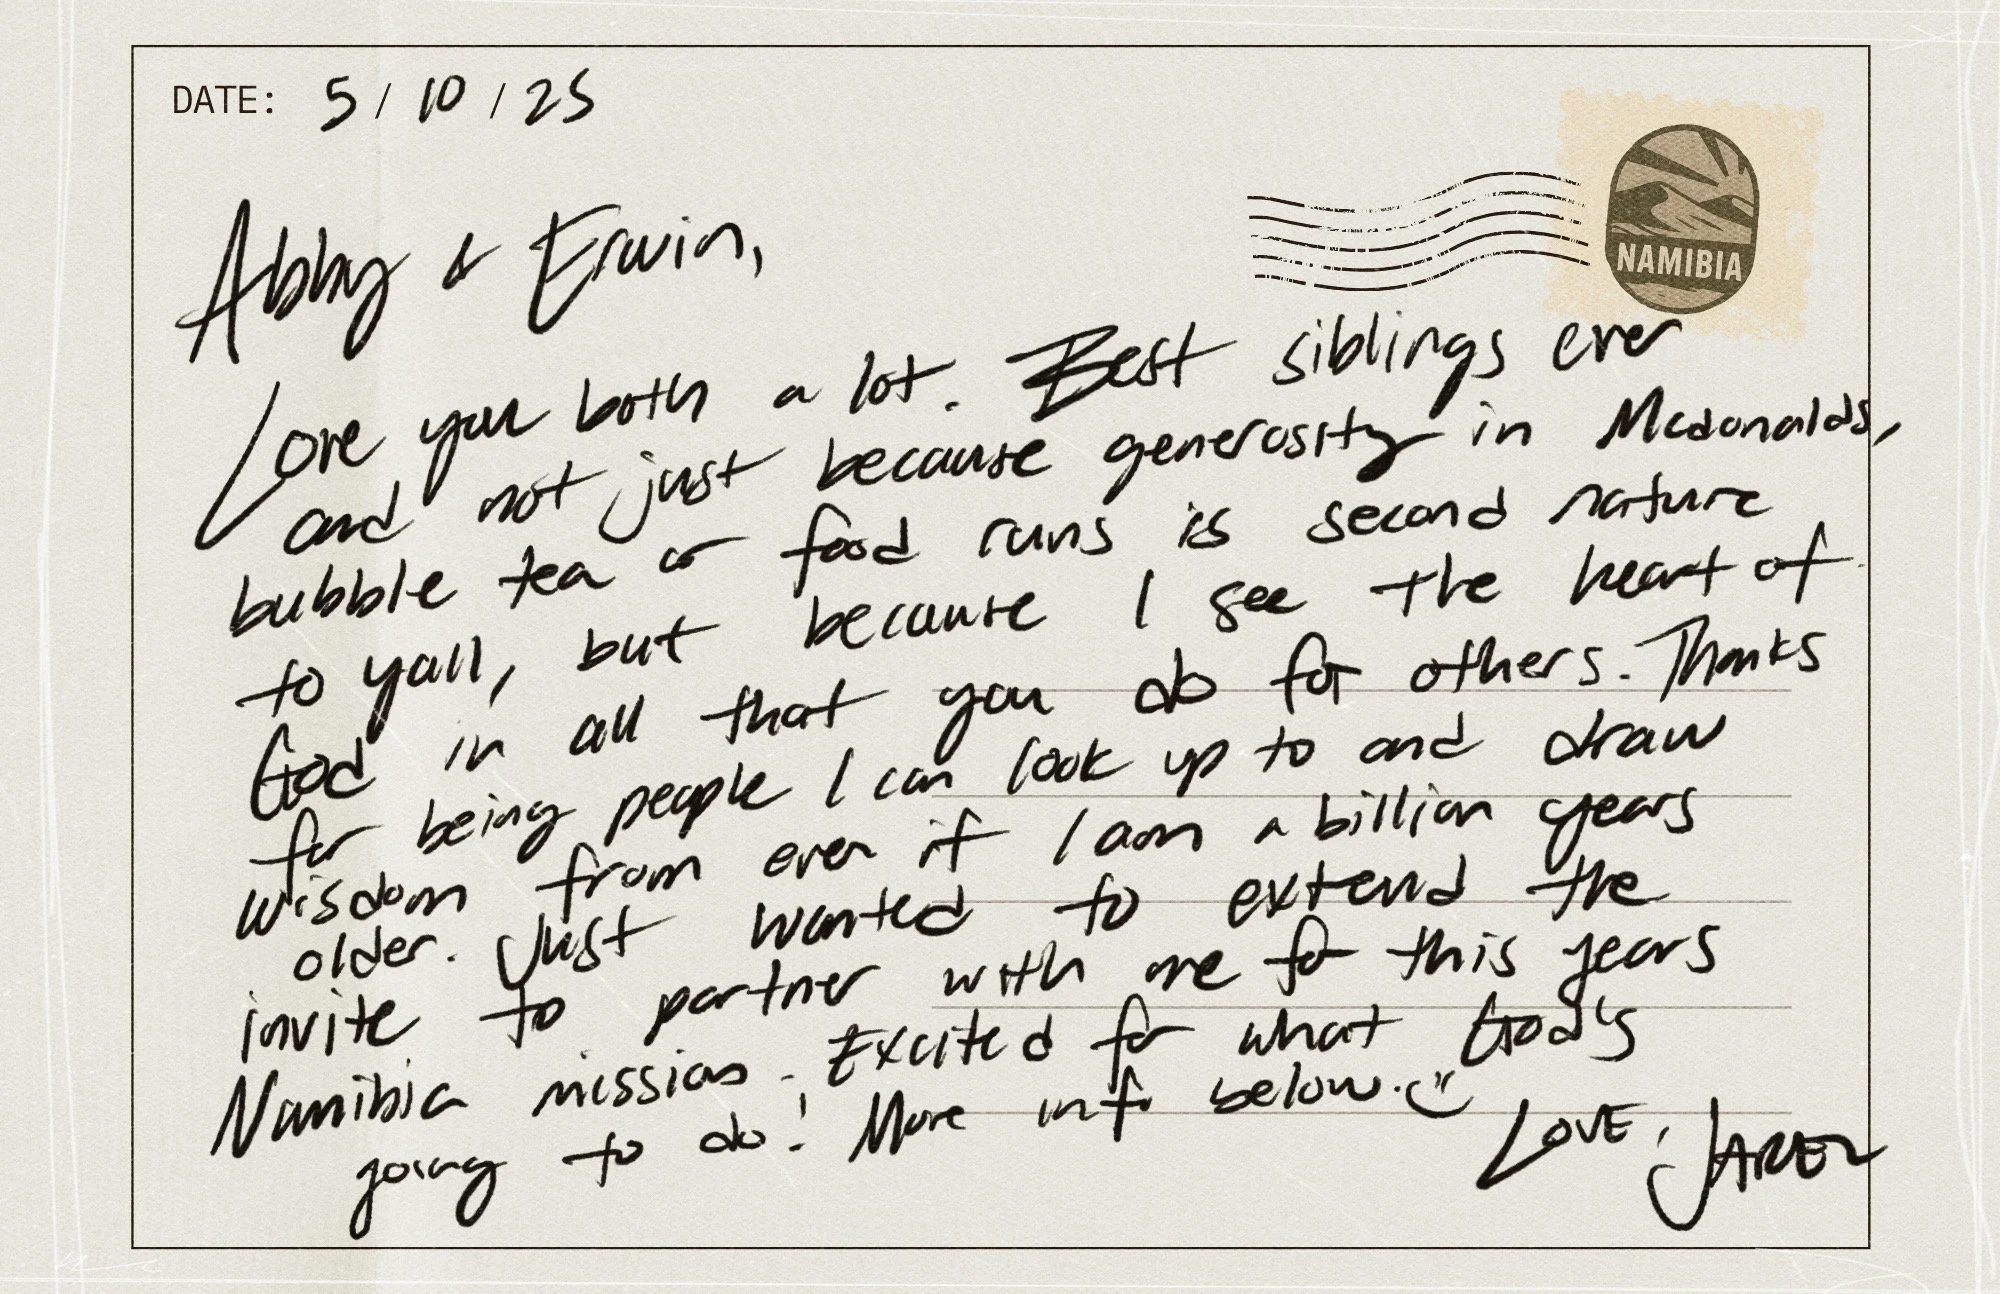 DATE: 5 / 10 / 25
NAMIBIA
Abby & Erwin,
Love you both a lot. Best siblings ever
and not just because generosity in Mcdonalds,
bubble tea or food runs is second nature
to yall, but because I see the heart of
God in all that you do for others. Thanks
for being people I can look up to and draw
wisdom from even if I am a billion years
older. Just wanted to extend the
invite to partner with me for this years
Namibia mission. Excited for what God's
going to do! More info below. :)
LOVE, JAREZ